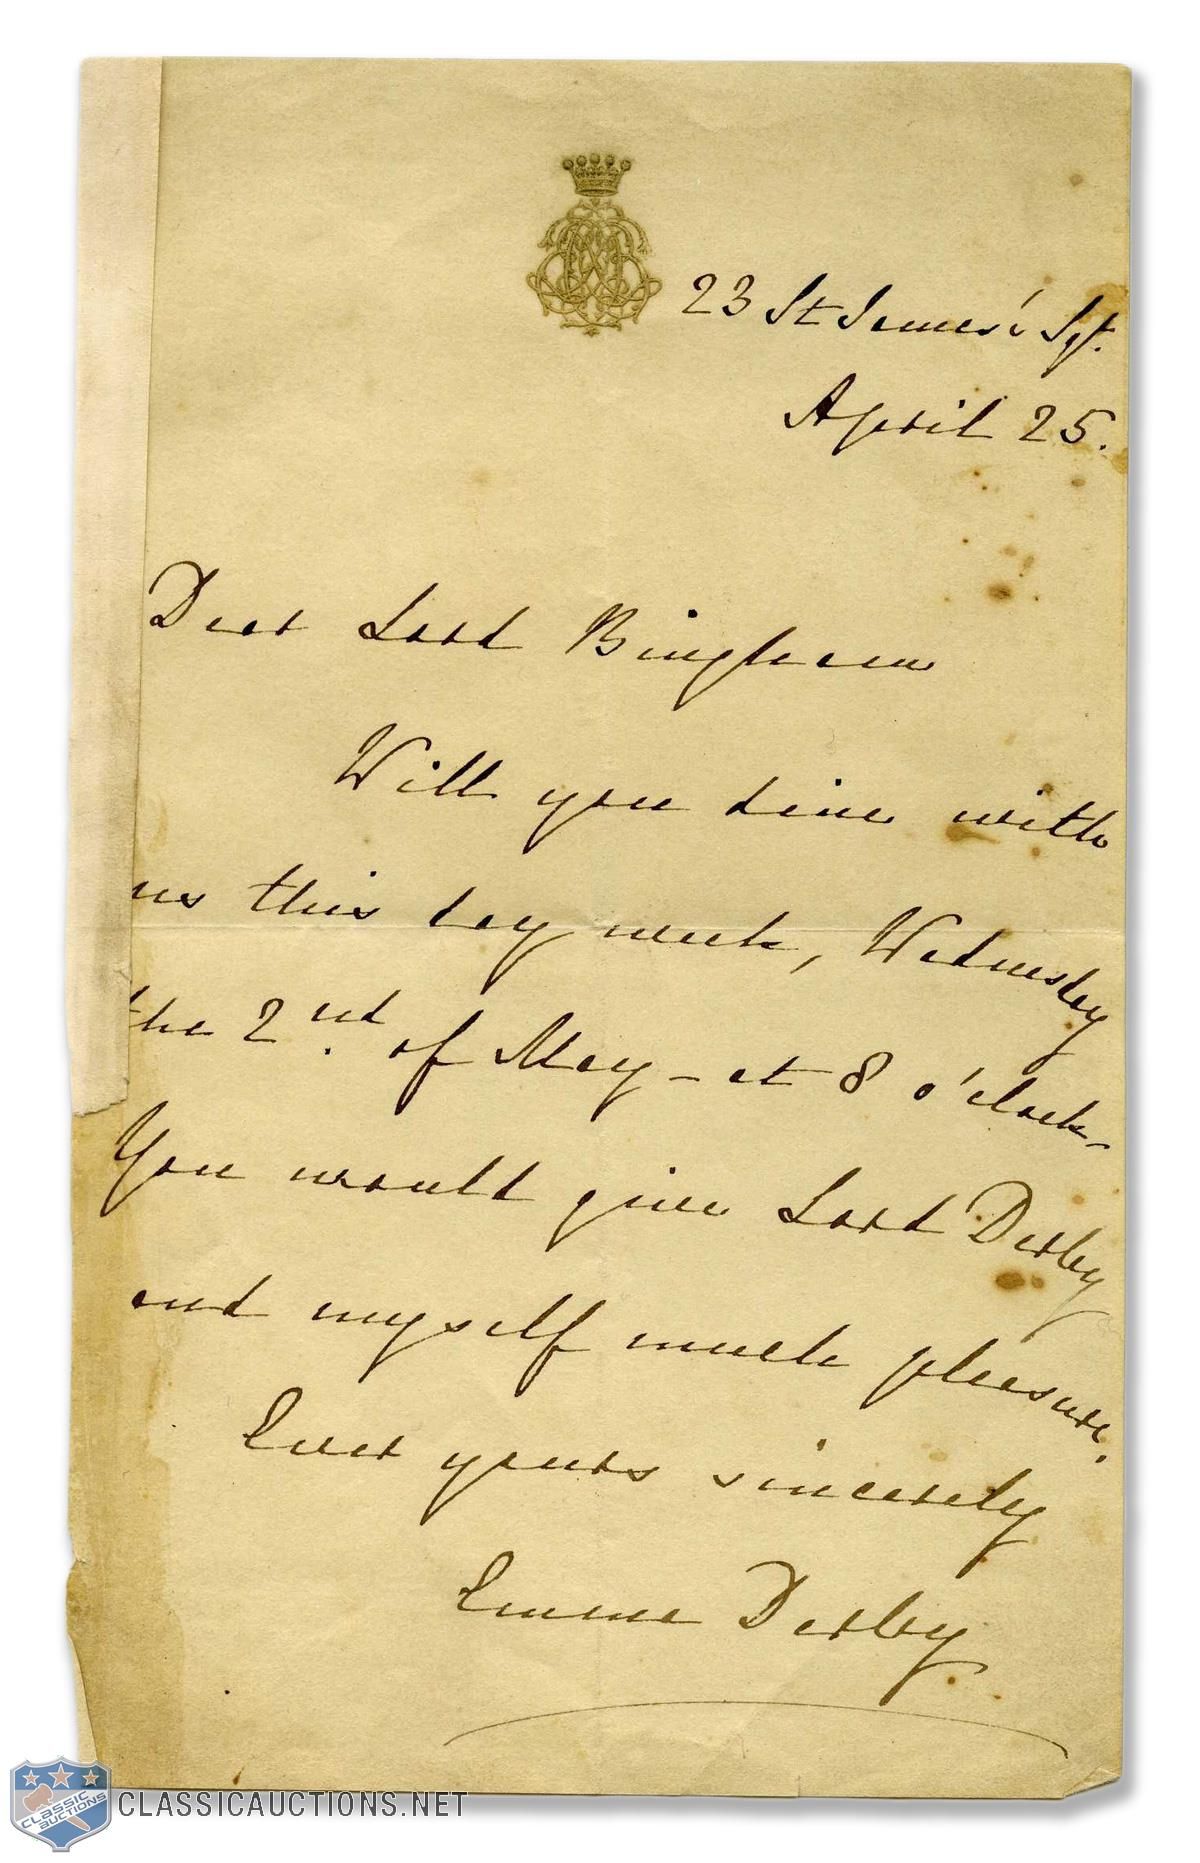 23 St James's Sqr.
April 25.
Dear Lord Bingham
Will you dine with
us this day week, Wednesday
the 2nd. of May - at 8 o'clock -
You would give Lord Derby
and myself much pleasure.
Ever yours sincerely
Emma Derby
CLASSIC
AUCTIONS
CLASSICAUCTIONS.NET